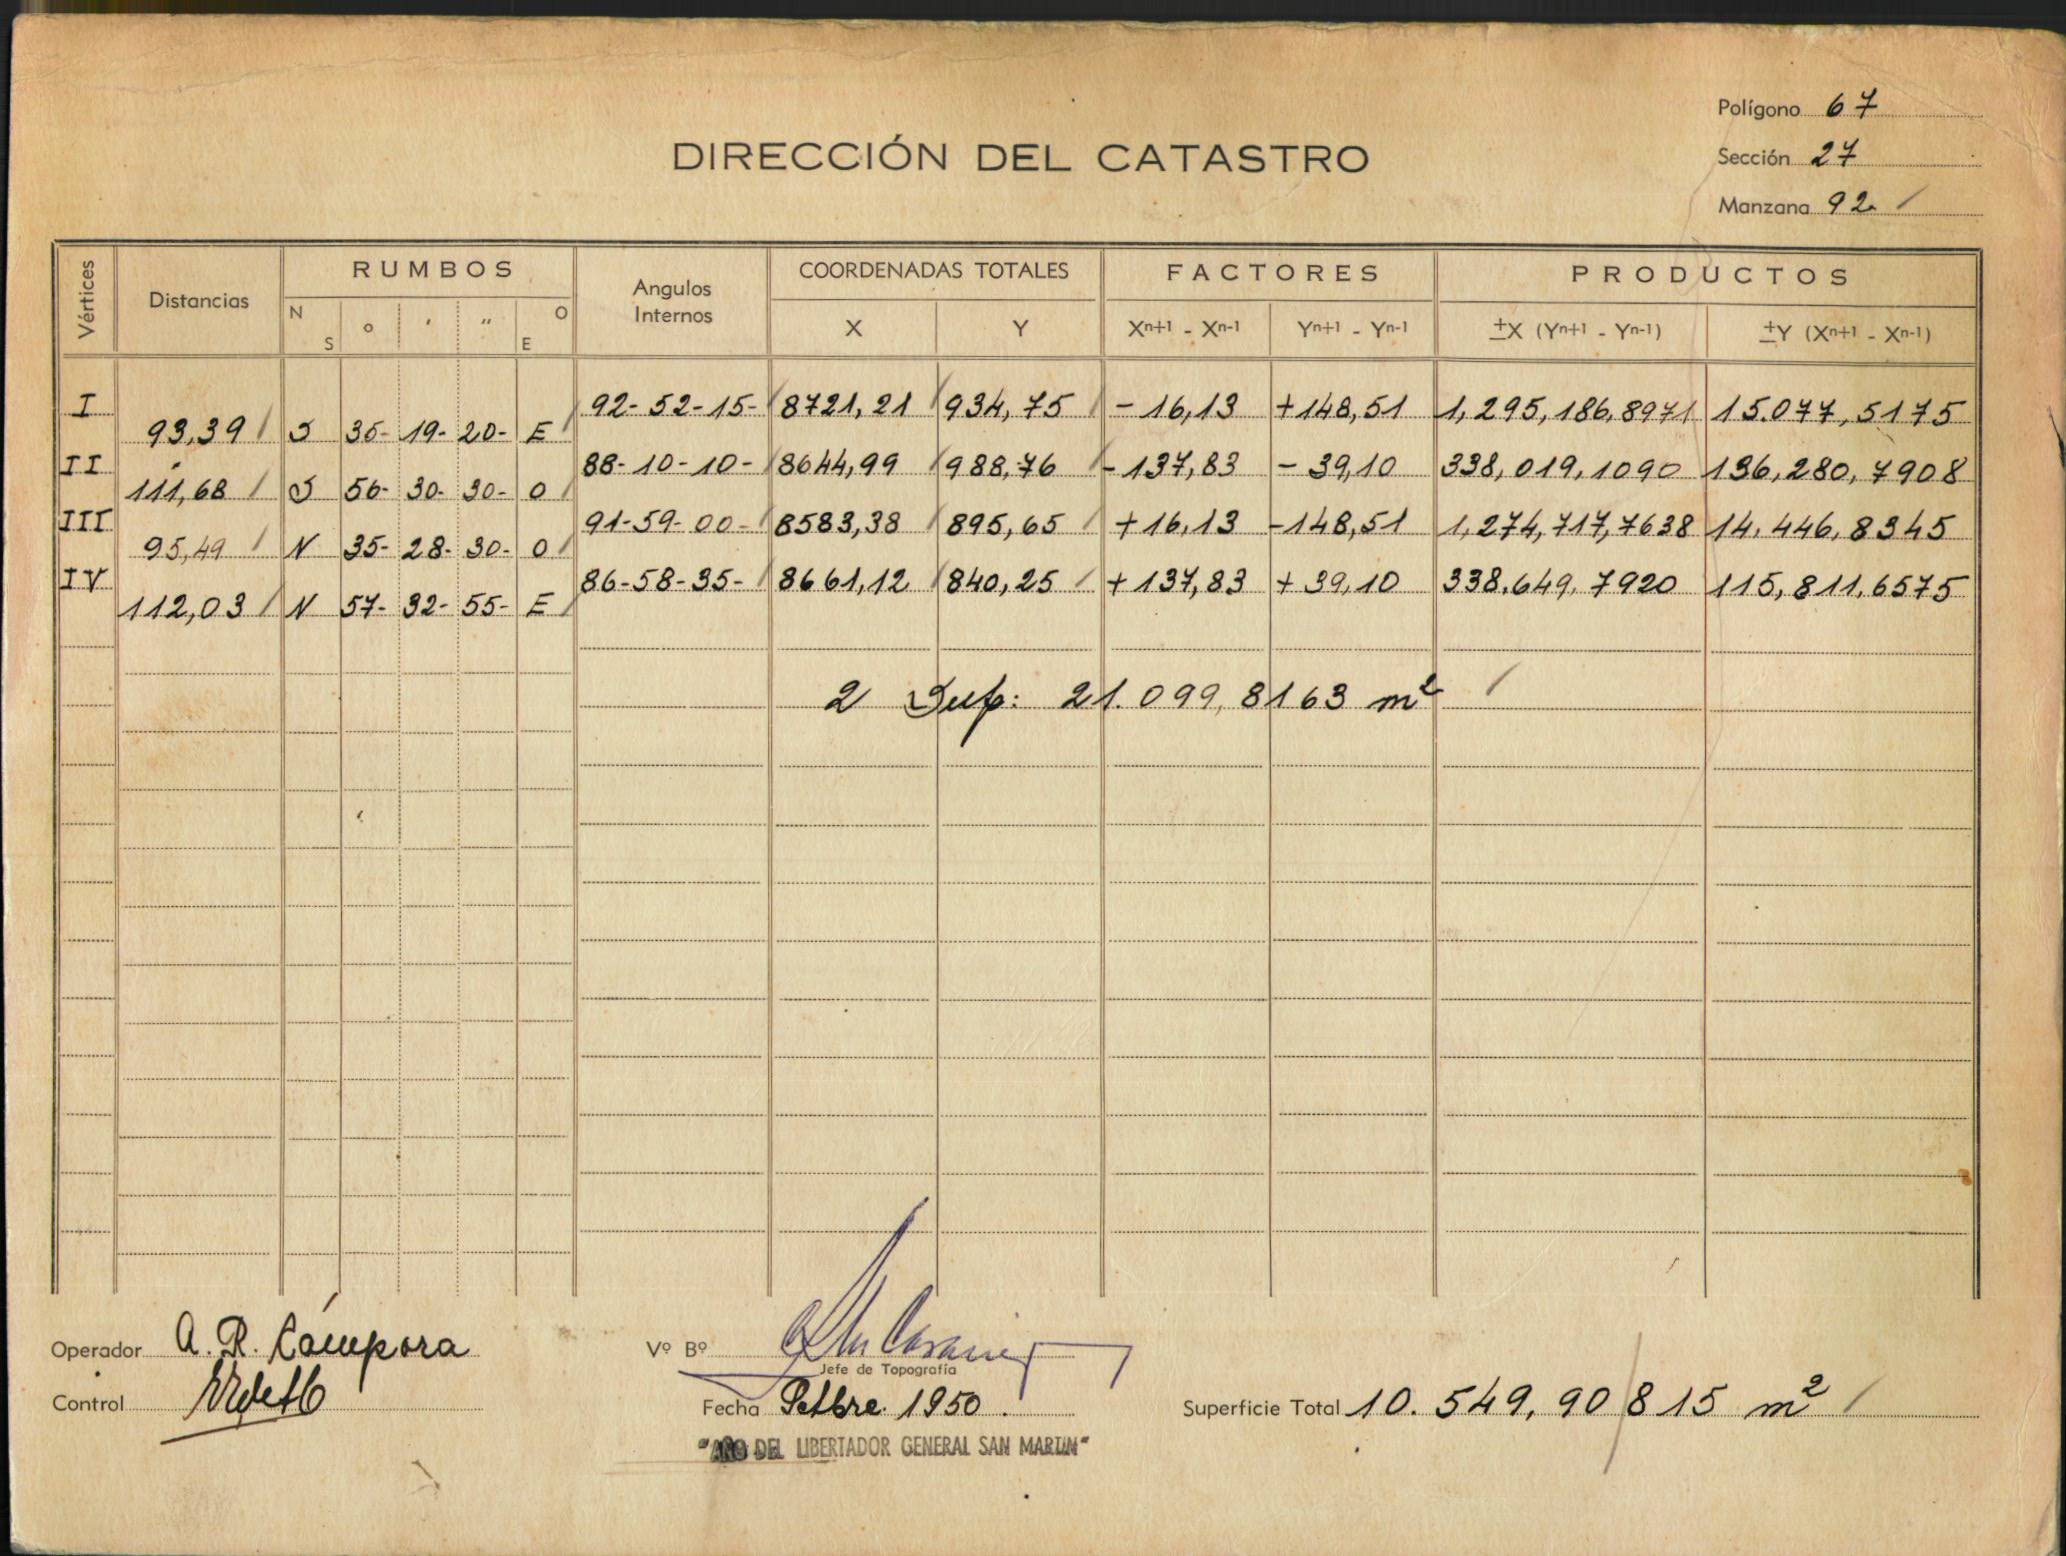 Polígono 67
DIRECCIÓN DEL CATASTRO
Sección 27
Manzana 92
Vértices Distancias RUMBOS Angulos Internos COORDENADAS TOTALES FACTORES PRODUCTOS
N S ° ' " O E X Y Xn+1 - Xn-1 Yn+1 - Yn-1 ±X (Yn+1 - Yn-1) ±Y (Xn+1 - Xn-1)
I 92-52-15- 8721,21 934,75 -16,13 +148,51 1,295,186,8971 15.077,5175
93,39 S 35- 19- 20- E
II 88-10-10- 8644,99 988,76 -137,83 -39,10 338,019,1090 136,280,7908
111,68 S 56- 30- 30- O
III 91-59-00- 8583,38 895,65 +16,13 -148,51 1,274,717,7638 14.446,8345
95,49 N 35- 28- 30- O
IV 86-58-35- 8661,12 840,25 +137,83 +39,10 338.649.7920 115,811.6575
112,03 N 57- 32- 55- E
2 Sup: 21.099,8163 m²
Operador A. R. Cámpora
Vº Bº
Jefe de Topografía
Control
Fecha Setbre. 1950.
Superficie Total 10.549,90815 m²
"AÑO DEL LIBERTADOR GENERAL SAN MARTIN"